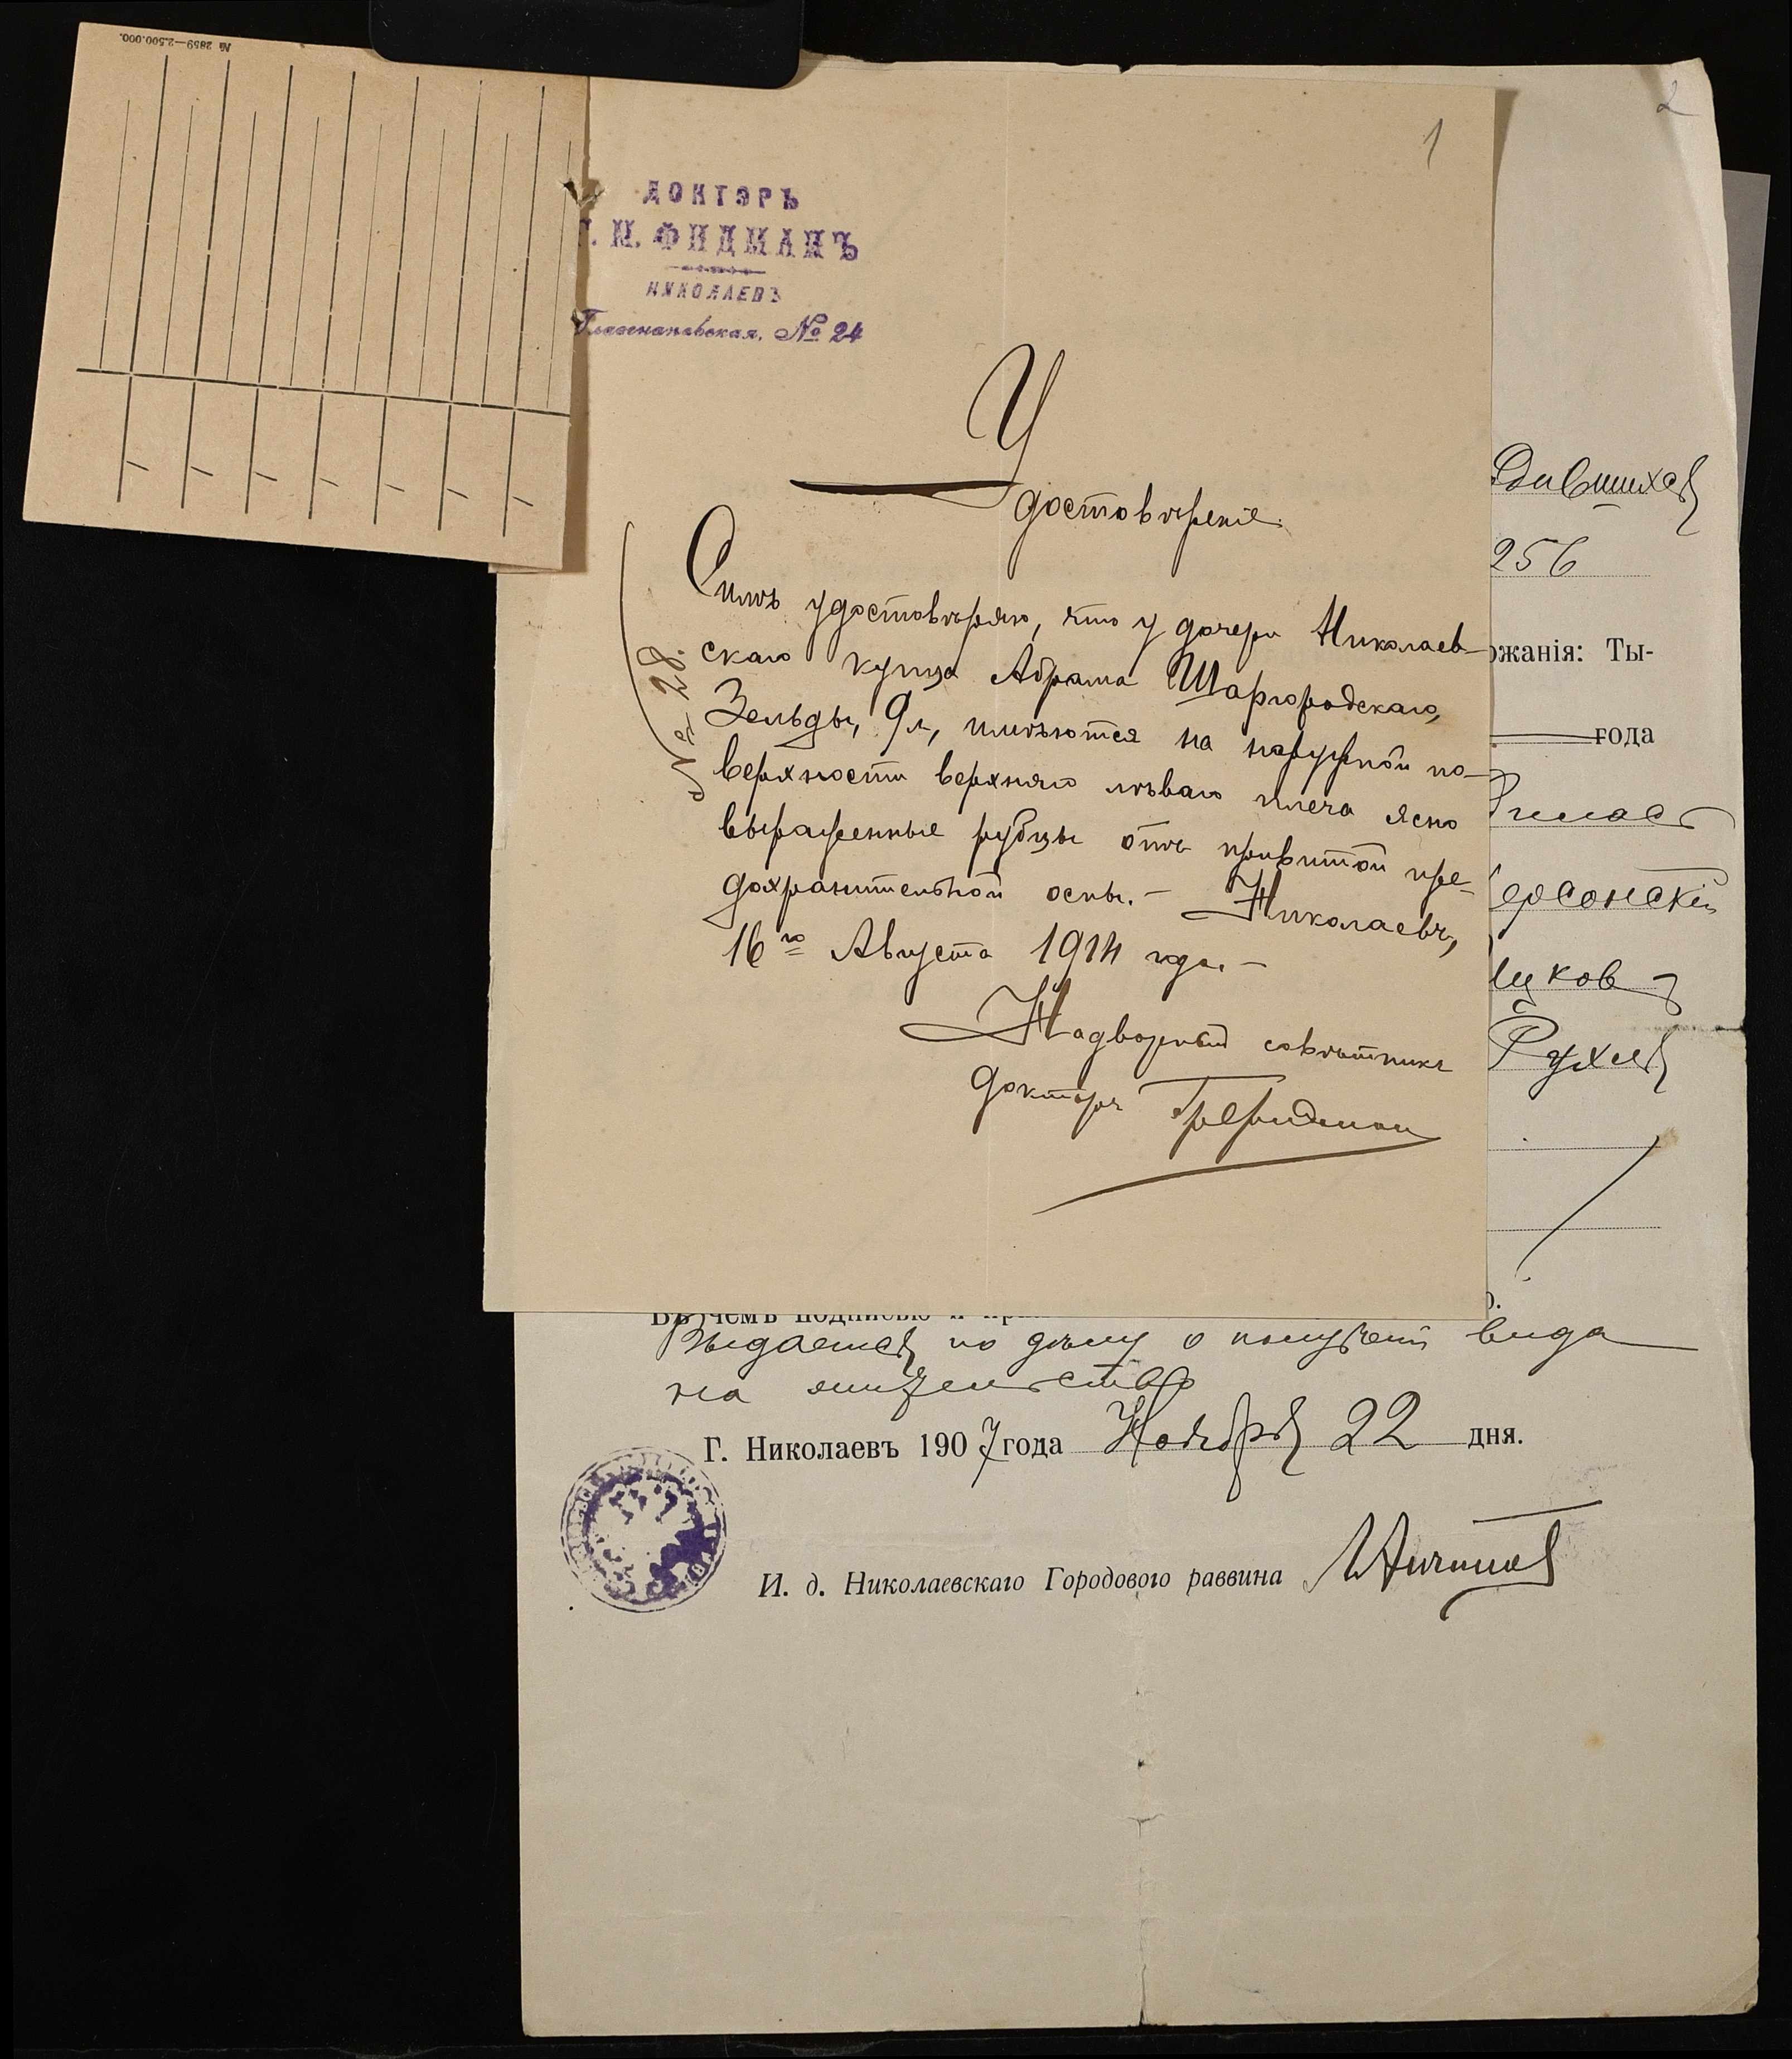 № 2859—2.500.000.
2
1
ДОКТОРЪ
. М. ФИДМАНЪ
НИКОЛАЕВЪ
Глазенаповская, № 24
№ 28.
Удостовѣреніе.
Симъ удостовѣряю, что у дочери Николаев-
скаго купца Абрама Шаргородскаго,
Зельды, 9 л, имѣются на наружной по-
верхности верхняго лѣваго плеча ясно
выраженные рубцы отъ привитой пре-
дохранительной оспы. – Николаевъ,
16го Августа 1914 года. –
Надворный совѣтникъ
докторъ
дившихся
256
ржанія: Ты-
года
ерсонскій
Рухля
Въ чемъ подписью и при
Выдается по дѣлу о полученіи вида
на жительство
Г. Николаевъ 1907 года Ноября 22 дня.
И. д. Николаевскаго Городового раввина